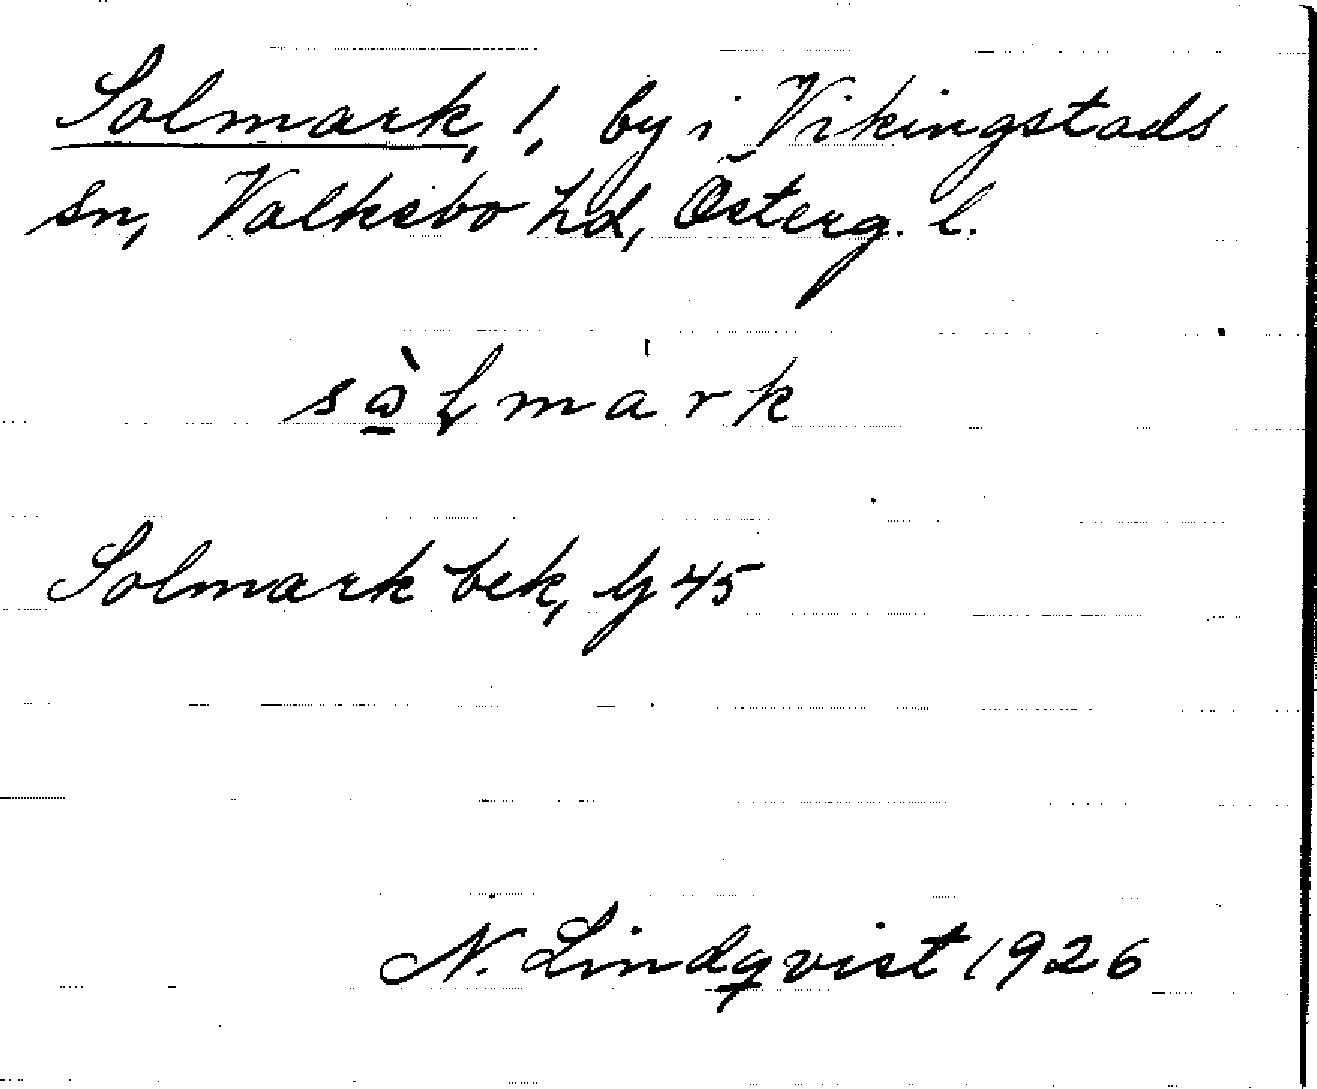 Solmark, 1, by i Vikingstads
sn, Valkebo hd, Österg. l.
Solmark bek, Gg 45
N. Lindqvist 1926